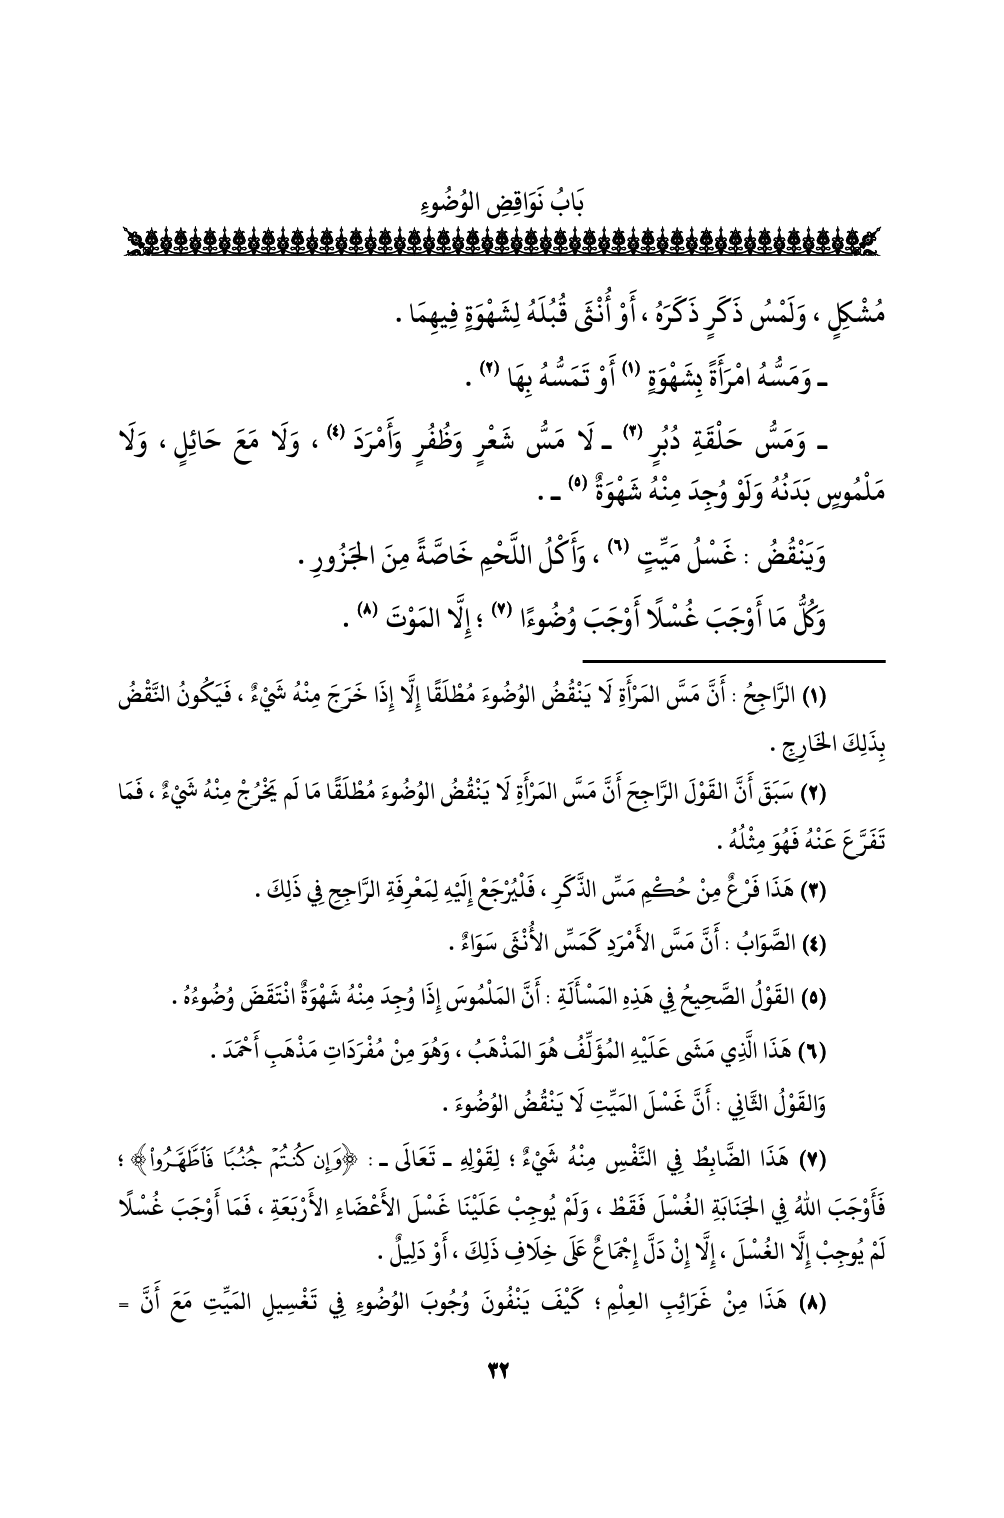 بَابُ نَوَاقِضِ الوُضُوءِ
مُشْكِلٍ ، وَلَمْسُ ذَكَرٍ ذَكَرَهُ ، أَوْ أُنْثَى قُبُلَهُ لِشَهْوَةٍ فِيهِمَا .
ـ وَمَسُّهُ امْرَأَةً بِشَهْوَةٍ (١) أَوْ تَمَسُّهُ بِهَا (٢) .
ـ وَمَسُّ حَلْقَةِ دُبُرٍ (٣) ـ لَا مَسُّ شَعْرٍ وَظُفُرٍ وَأَمْرَدَ (٤) ، وَلَا مَعَ حَائِلٍ ، وَلَا
مَلْمُوسٍ بَدَنُهُ وَلَوْ وُجِدَ مِنْهُ شَهْوَةٌ (٥) ـ .
وَيَنْقُضُ : غَسْلُ مَيِّتٍ (٦) ، وَأَكْلُ اللَّحْمِ خَاصَّةً مِنَ الجَزُورِ .
وَكُلُّ مَا أَوْجَبَ غُسْلًا أَوْجَبَ وُضُوءًا (٧) ؛ إِلَّا المَوْتَ (٨) .
(١) الرَّاجِحُ : أَنَّ مَسَّ المَرْأَةِ لَا يَنْقُضُ الوُضُوءَ مُطْلَقًا إِلَّا إِذَا خَرَجَ مِنْهُ شَيْءٌ ، فَيَكُونُ النَّقْضُ
بِذَلِكَ الخَارِجِ .
(٢) سَبَقَ أَنَّ القَوْلَ الرَّاجِحَ أَنَّ مَسَّ المَرْأَةِ لَا يَنْقُضُ الوُضُوءَ مُطْلَقًا مَا لَم يَخْرُجْ مِنْهُ شَيْءٌ ، فَمَا
تَفَرَّعَ عَنْهُ فَهُوَ مِثْلُهُ .
(٣) هَذَا فَرْعٌ مِنْ حُكْمِ مَسِّ الذَّكَرِ ، فَلْيُرْجَعْ إِلَيْهِ لِمَعْرِفَةِ الرَّاجِحِ فِي ذَلِكَ .
(٤) الصَّوَابُ : أَنَّ مَسَّ الأَمْرَدِ كَمَسِّ الأُنْثَى سَوَاءٌ .
(٥) القَوْلُ الصَّحِيحُ فِي هَذِهِ المَسْأَلَةِ : أَنَّ المَلْمُوسَ إِذَا وُجِدَ مِنْهُ شَهْوَةٌ انْتَقَضَ وُضُوءُهُ .
(٦) هَذَا الَّذِي مَشَى عَلَيْهِ المُؤَلِّفُ هُوَ المَذْهَبُ ، وَهُوَ مِنْ مُفْرَدَاتِ مَذْهَبِ أَحْمَدَ .
وَالقَوْلُ الثَّانِي : أَنَّ غَسْلَ المَيِّتِ لَا يَنْقُضُ الوُضُوءَ .
(٧) هَذَا الضَّابِطُ فِي النَّفْسِ مِنْهُ شَيْءٌ ؛ لِقَوْلِهِ ـ تَعَالَى ـ : ﴿وَإِن كُنتُمْ جُنُبًا فَٱطَّهَّرُوا۟﴾ ؛
فَأَوْجَبَ اللهُ فِي الجَنَابَةِ الغُسْلَ فَقَطْ ، وَلَمْ يُوجِبْ عَلَيْنَا غَسْلَ الأَعْضَاءِ الأَرْبَعَةِ ، فَمَا أَوْجَبَ غُسْلًا
لَمْ يُوجِبْ إِلَّا الغُسْلَ ، إِلَّا إِنْ دَلَّ إِجْمَاعٌ عَلَى خِلَافِ ذَلِكَ ، أَوْ دَلِيلٌ .
(٨) هَذَا مِنْ غَرَائِبِ العِلْمِ ؛ كَيْفَ يَنْفُونَ وُجُوبَ الوُضُوءِ فِي تَغْسِيلِ المَيِّتِ مَعَ أَنَّ =
٣٢